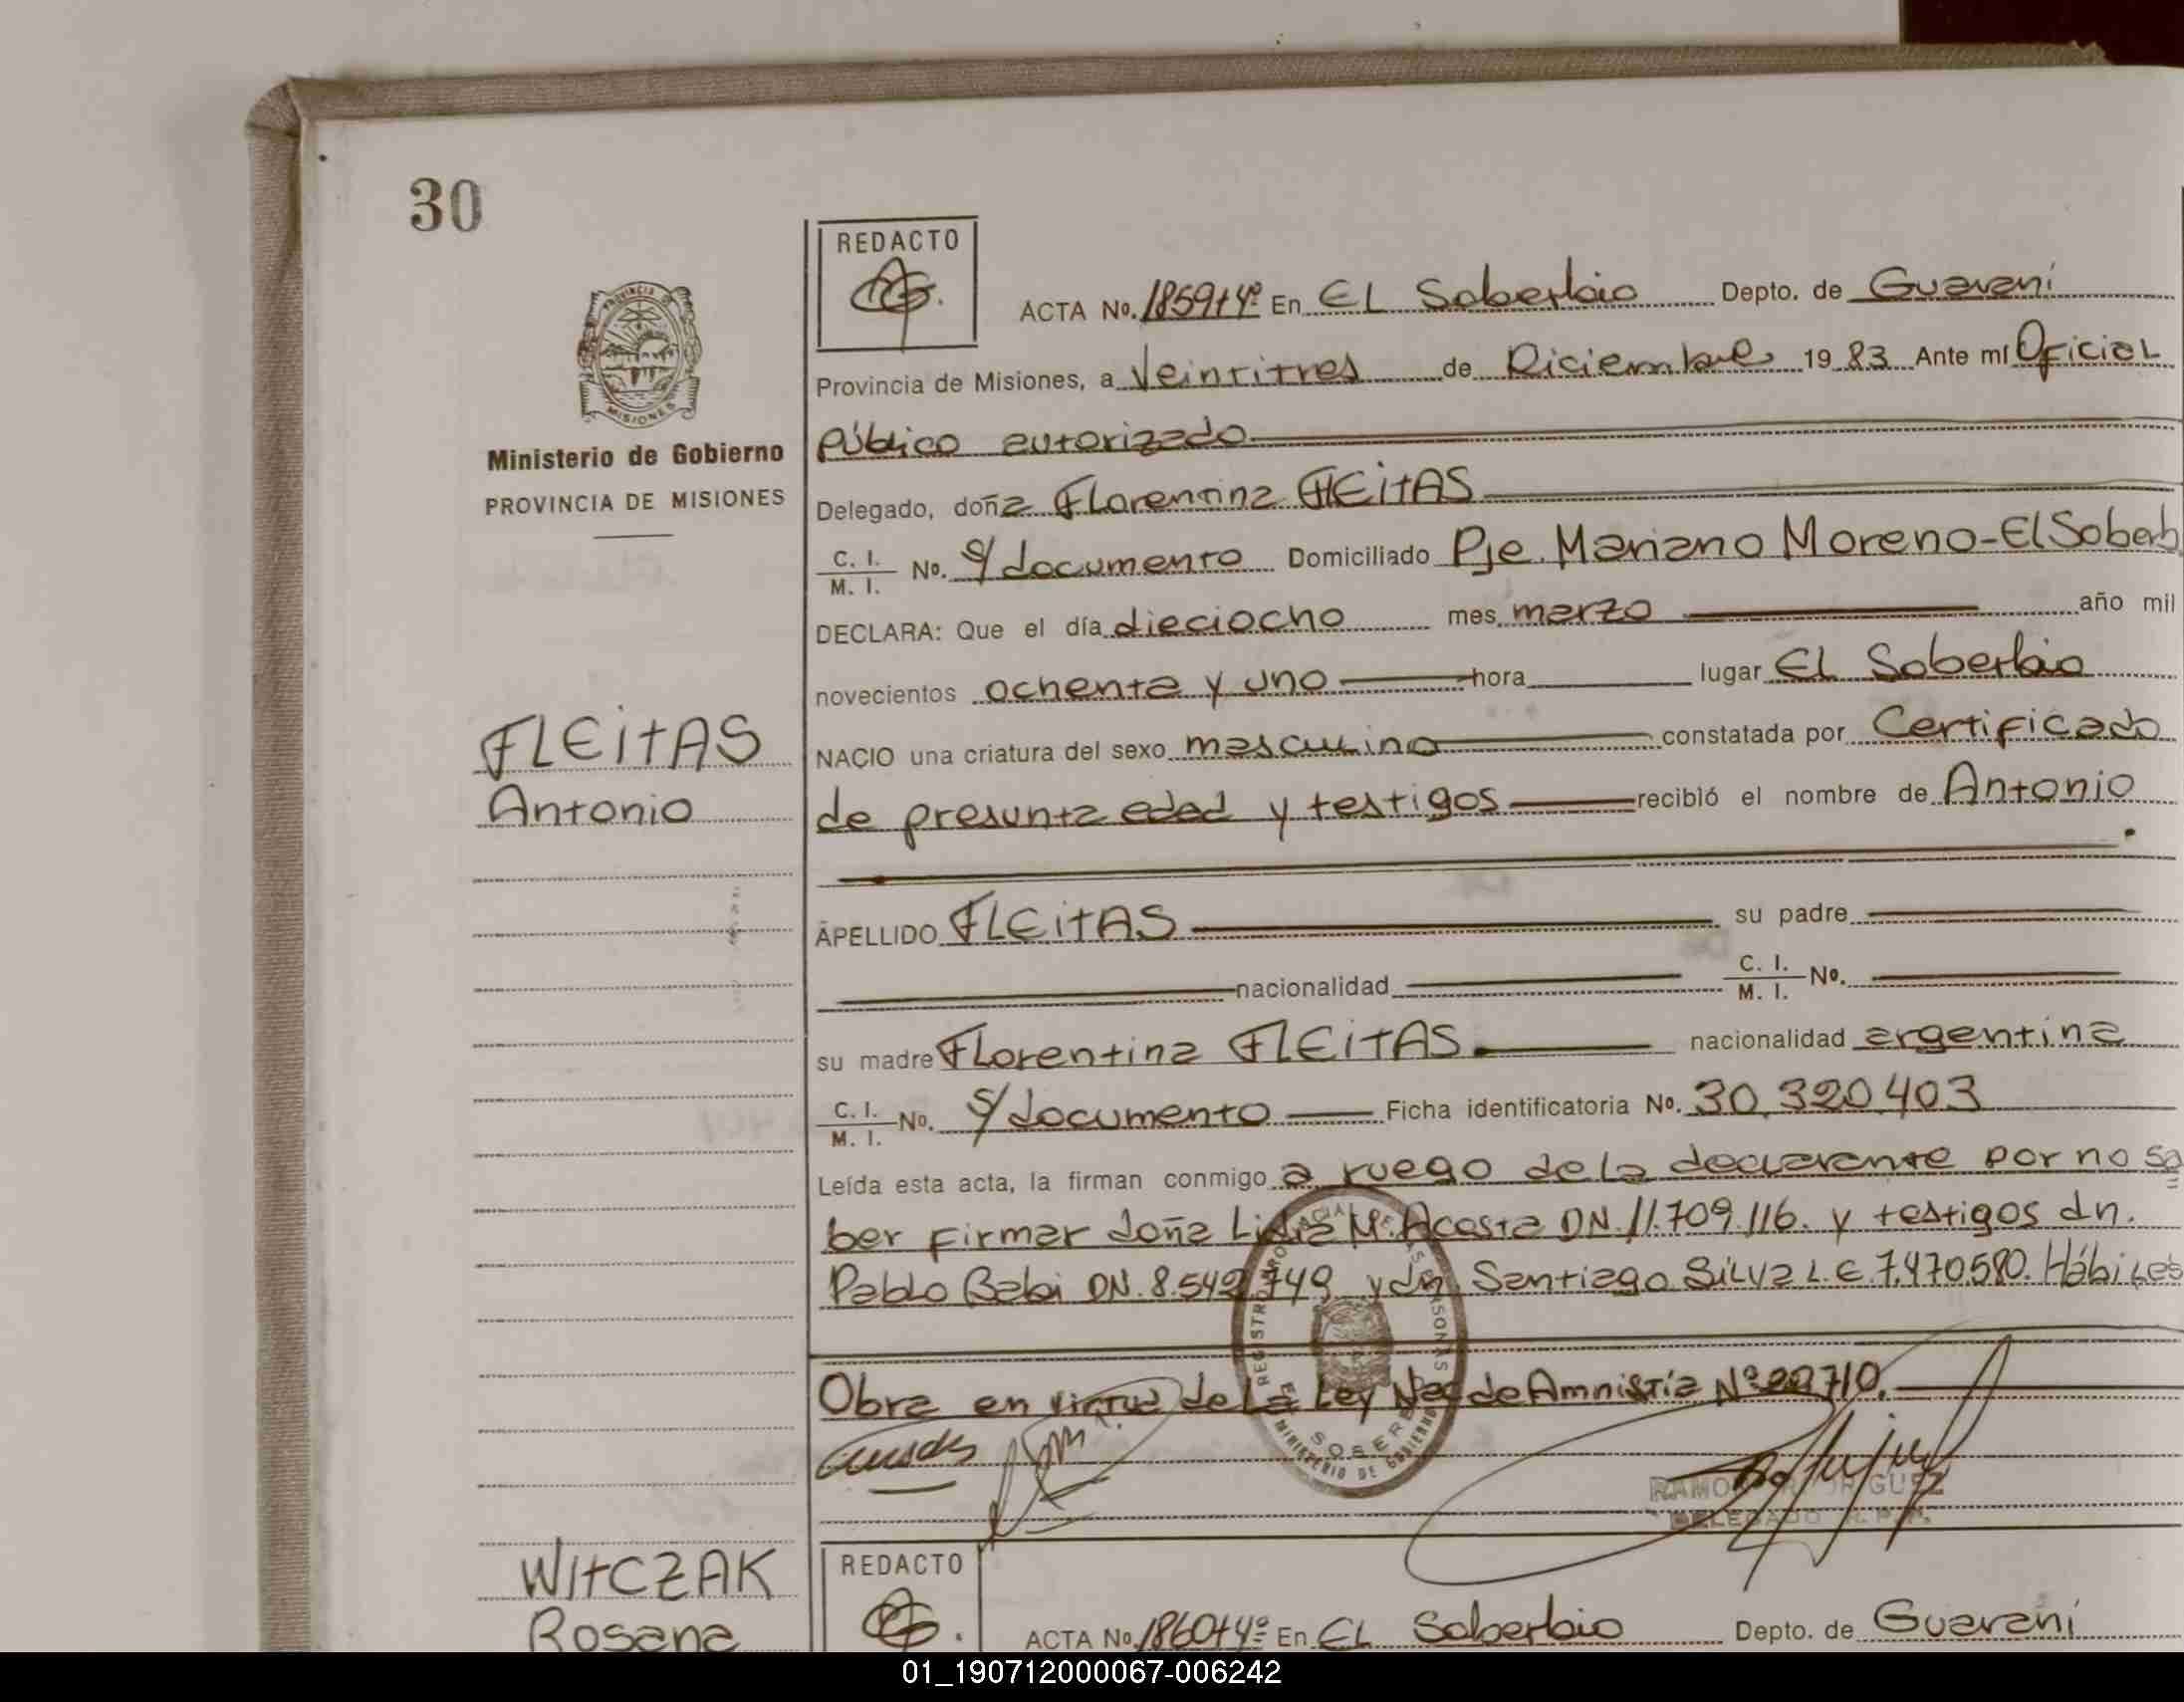 30
REDACTO
ACTA No. 1859t4º En EL Soberbio Depto. de Guaraní
Provincia de Misiones, a Veintitres de Diciembre 1983 Ante mí Oficial
Público autorizado
Ministerio de Gobierno
PROVINCIA DE MISIONES
Delegado, doña Florentina FLEitAS
C. I. M. I. No. s/documento Domiciliado Pje. Mariano Moreno-El Soberb
DECLARA: Que el día dieciocho mes marzo año mil
novecientos ochenta y uno hora lugar EL Soberbio
FLEitAS
NACIO una criatura del sexo masculino constatada por Certificado
Antonio
de presunta edad y testigos recibió el nombre de Antonio
APELLIDO FLEitAS su padre
nacionalidad C. I. M. I. No.
su madre Florentina FLEITAS nacionalidad argentina
C. I. M. I. No. s/documento Ficha identificatoria No. 30.320.403
Leída esta acta, la firman conmigo a ruego de la declarante por no sa
ber firmar doña Lidia M. Acosta DN. 11.709.116. y testigos dn.
Pablo Babi DN. 8.542.749 y dn Santiago Silva L.E 7.470.580. Hábiles
Obra en virtud de La Ley Nac de Amnistía Nº 22710.
DELEGADO
WitCZAK
Rosana
REDACTO
ACTA No. 1860t4º En EL Soberbio Depto. de Guaraní
01_190712000067-006242